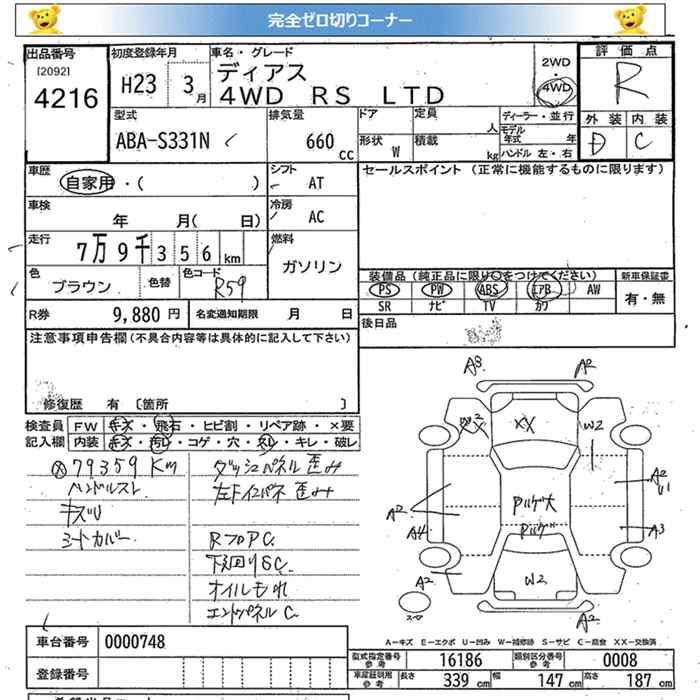 完全ゼロ切りコーナー
出品番号 初度登録年月 車名・グレード 評価点
[2092] ディアス 2WD
4216 H23 3月 4WD RS LTD ・4WD R
型式 排気量 ドア 定員 ディーラー・並行 外装 内装
ABA-S331N 660cc 人 モデル年式 年 D C
形状 W 積載 kg ハンドル 左・右
車歴 シフト セールスポイント (正常に機能するものに限ります)
自家用・( ) AT
車検 冷房
年 月( 日) AC
走行 燃料
7万9千356km ガソリン
色 色替 色コード 装備品 (純正品に限り○をつけてください) 新車保証書
ブラウン R59 PS PW ABS エアB AW 有・無
SR ナビ TV カワ
R券 9,880円 名変通知期限 月 日 後日品
注意事項申告欄(不具合内容等は具体的に記入して下さい)
修復歴 有 〔箇所 〕
検査員 FW キズ・飛石・ヒビ割・リペア跡・×要
記入欄 内装 キズ・汚レ・コゲ・穴・スレ・キレ・破レ
79359Km ダッシュパネル歪み
ハンドルスレ 左Fインパネ歪み
キズU
シートカバー RフロアC
下廻りSC
オイルもれ
エンドパネルC
A3 A2
XX W2
A2 A2 U1
Pルゲ大
A4 Pルゲ A3
A2 W2
スペア A2
A-キズ E-エクボ U-凹み W-補修跡 S-サビ C-腐食 XX-交換済
車台番号 0000748
型式指定番号 参考 16186 類別区分番号 参考 0008
登録番号 車産証明用 参考 長さ 339cm 幅 147cm 高さ 187cm